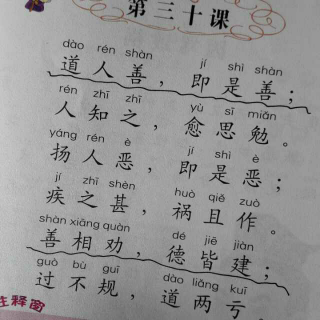 第三十课
dào rén shàn jí shì shàn
道人善，即是善；
rén zhī zhī yù sī miǎn
人知之，愈思勉。
yáng rén è jí shì è
扬人恶，即是恶；
jí zhī shèn huò qiě zuò
疾之甚，祸且作。
shàn xiāng quàn dé jiē jiàn
善相劝，德皆建；
guò bù guī dào liǎng kuī
过不规，道两亏。
注释窗